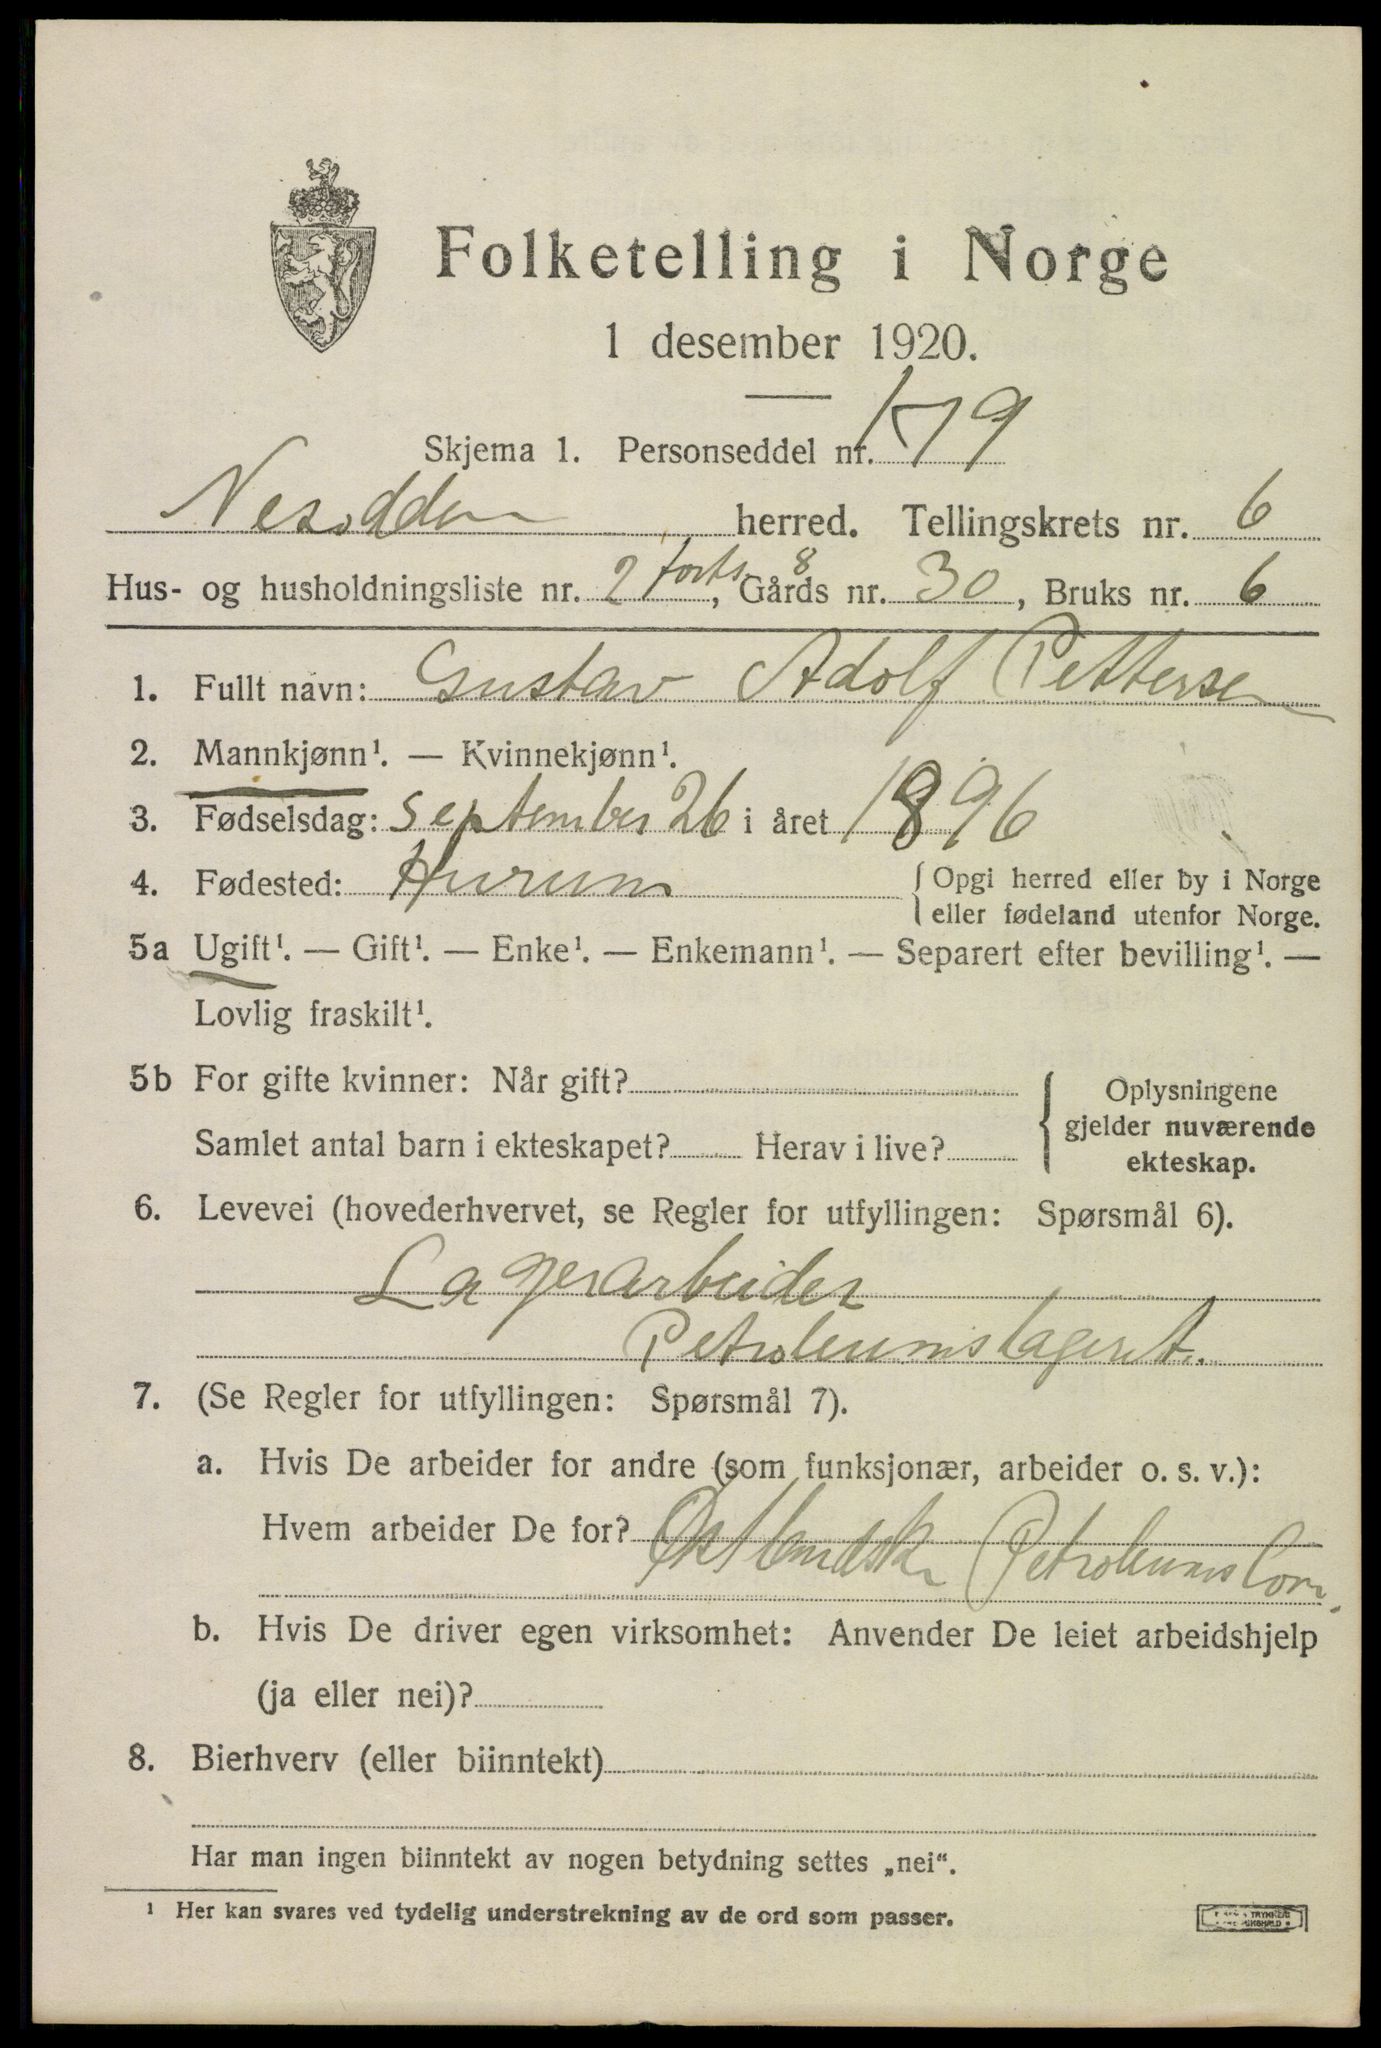 Folketelling i Norge
1 desember 1920.
Skjema 1. Personseddel nr. 179
Nesodden herred. Tellingskrets nr. 6
Hus- og husholdningsliste nr. 2 forts. 8, Gårds nr. 30, Bruks nr. 6
1. Fullt navn: Gustav Adolf Pettersen
2. Mannkjønn¹. — Kvinnekjønn¹.
3. Fødselsdag: September 26 i året 1896
4. Fødested: Hurum { Opgi herred eller by i Norge
eller fødeland utenfor Norge.
5a Ugift¹. — Gift¹. — Enke¹. — Enkemann¹. — Separert efter bevilling¹. —
Lovlig fraskilt¹.
5b For gifte kvinner: Når gift?
Samlet antal barn i ekteskapet? Herav i live?
{ Oplysningene
gjelder nuværende
ekteskap.
6. Levevei (hovederhvervet, se Regler for utfyllingen: Spørsmål 6).
Lagerarbeider
Petroleumslageret.
7. (Se Regler for utfyllingen: Spørsmål 7).
a. Hvis De arbeider for andre (som funksjonær, arbeider o. s. v.):
Hvem arbeider De for? Østlandske Petroleums Com.
b. Hvis De driver egen virksomhet: Anvender De leiet arbeidshjelp
(ja eller nei)?
8. Bierhverv (eller biinntekt)
Har man ingen biinntekt av nogen betydning settes „nei“.
¹ Her kan svares ved tydelig understrekning av de ord som passer.